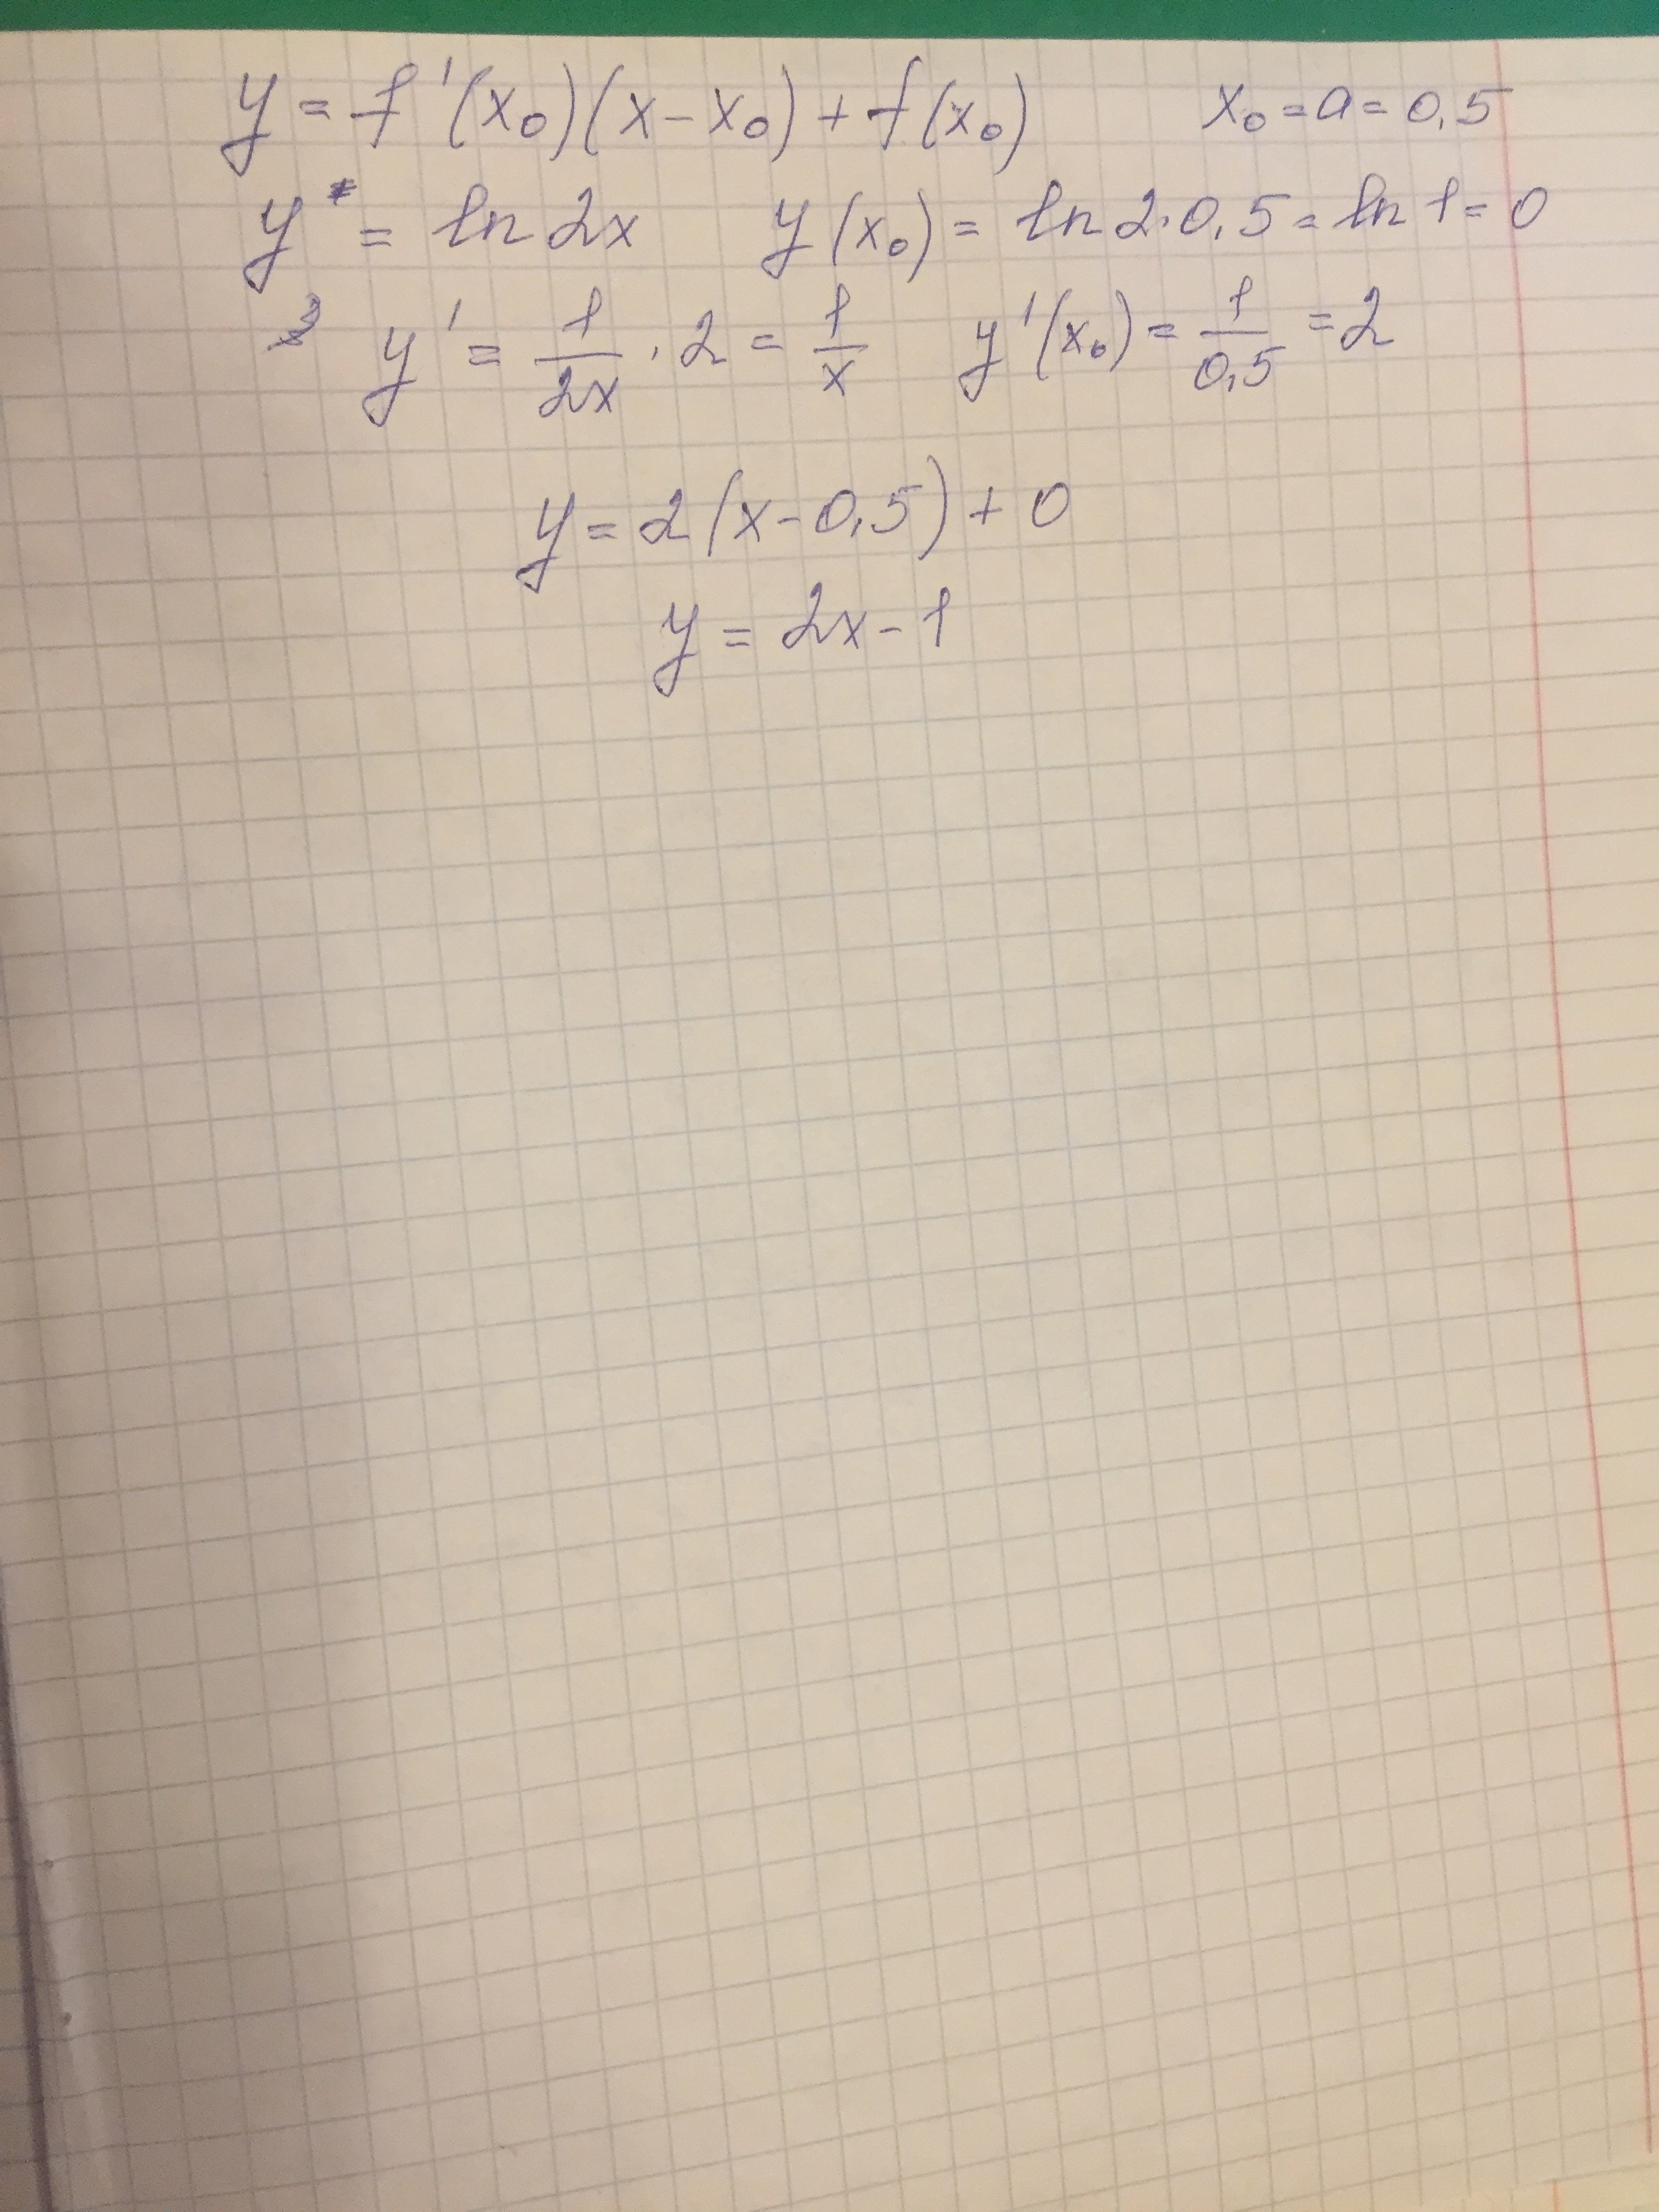 y = f'(x₀)(x - x₀) + f(x₀) x₀ = a = 0,5
y = ln 2x y(x₀) = ln 2·0,5 = ln 1 = 0
y' = 1/2x · 2 = 1/x y'(x₀) = 1/0,5 = 2
y = 2(x - 0,5) + 0
y = 2x - 1